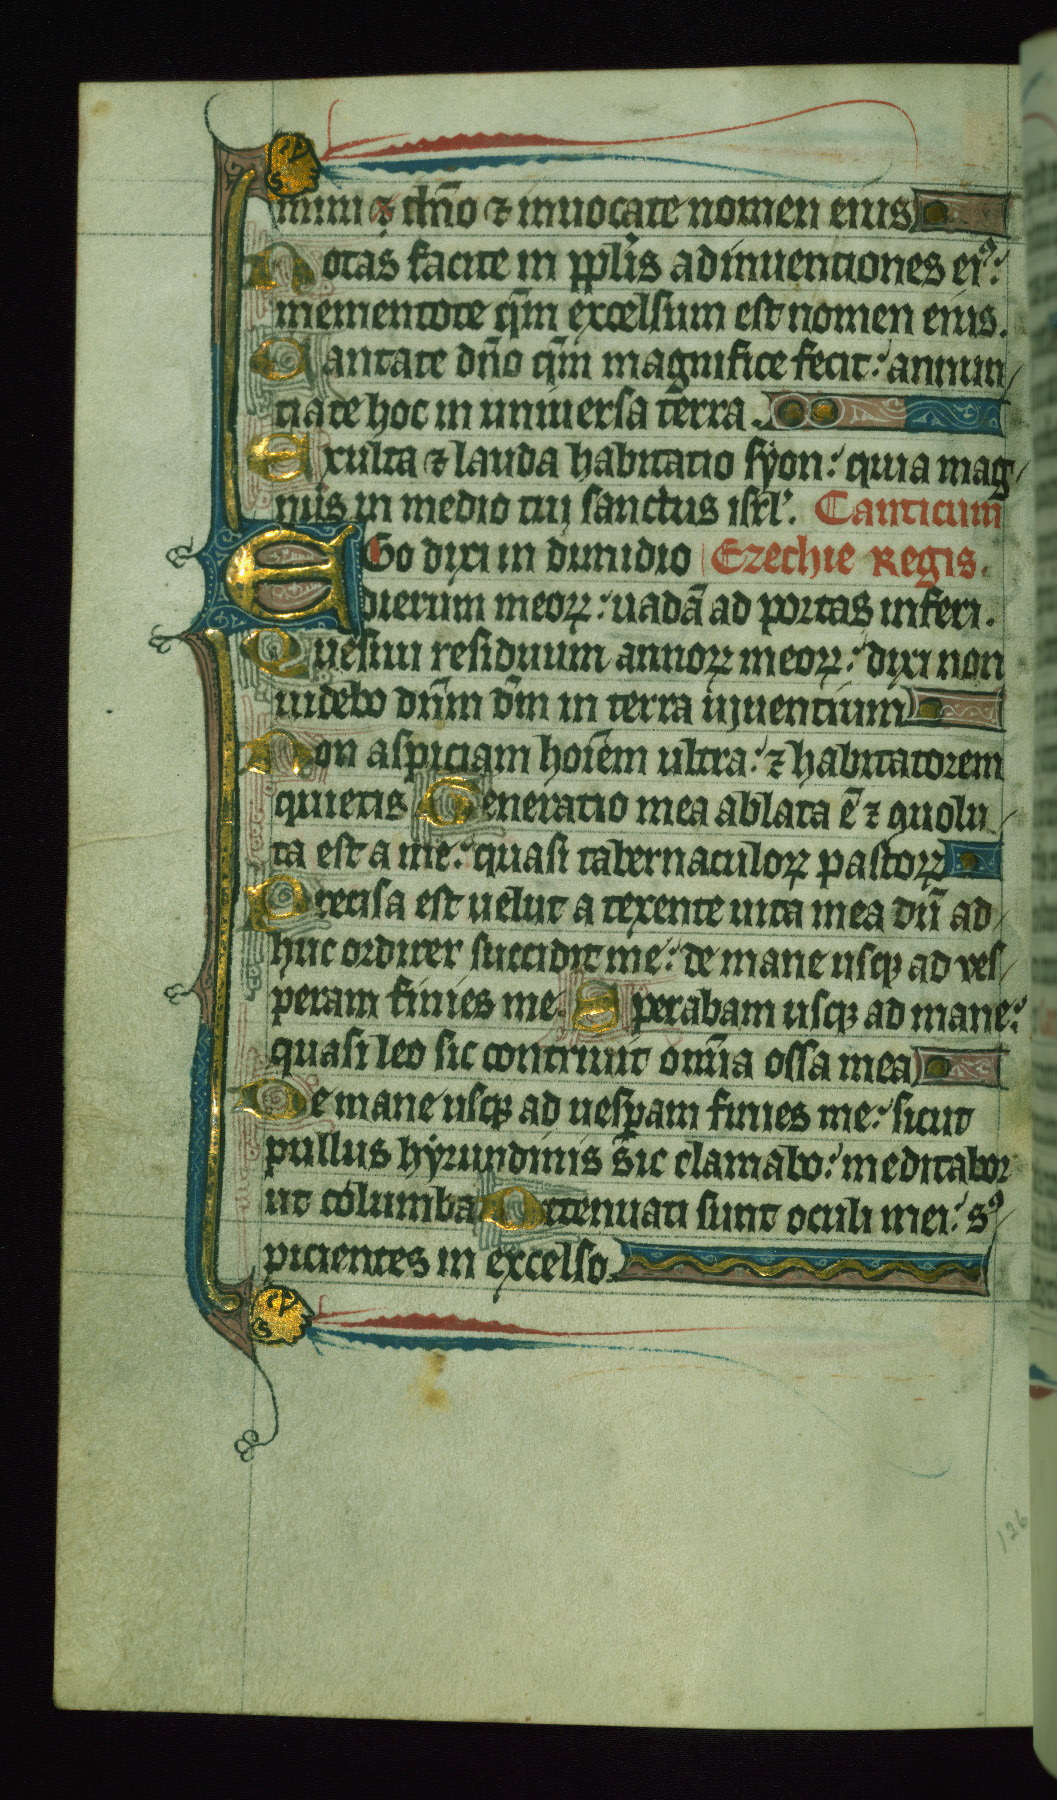 mini & dn̄o ⁊ inuocate nomen eius
Notas facite in pplis adinuentiones ei⁹:
mementote qm̄ excelsum est nomen eius.
Cantate dn̄o qm̄ magnifice fecit: annun
tiate hoc in uniuersa terra.
Exulta ⁊ lauda habitatio syon: quia mag
nus in medio tui sanctus isrl'. Canticum
EGo dixi in dimidio Ezechie Regis.
dierum meoꝝ: uadā ad portas inferi.
Quesiui residuum annoꝝ meoꝝ: dixi non
uidebo dn̄m dm̄ in terra uiuentium
Non aspiciam hoīem ultra: ⁊ habitatorem
quietis Generatio mea ablata ē ⁊ ꝯuolu
ta est a me: quasi tabernaculoꝝ pastoꝝ
Precisa est uelut a texente uita mea dū ad
huc ordirer succidit me: de mane usqꝫ ad ves
peram finies me. Sperabam usqꝫ ad mane:
quasi leo sic contriuit om̄ia ossa mea
De mane usqꝫ ad uesꝑam finies me: sicut
pullus hyrundinis sic clamabo: meditabor
ut columba Attenuati sunt oculi mei: s⁹
picientes in excelso.
126